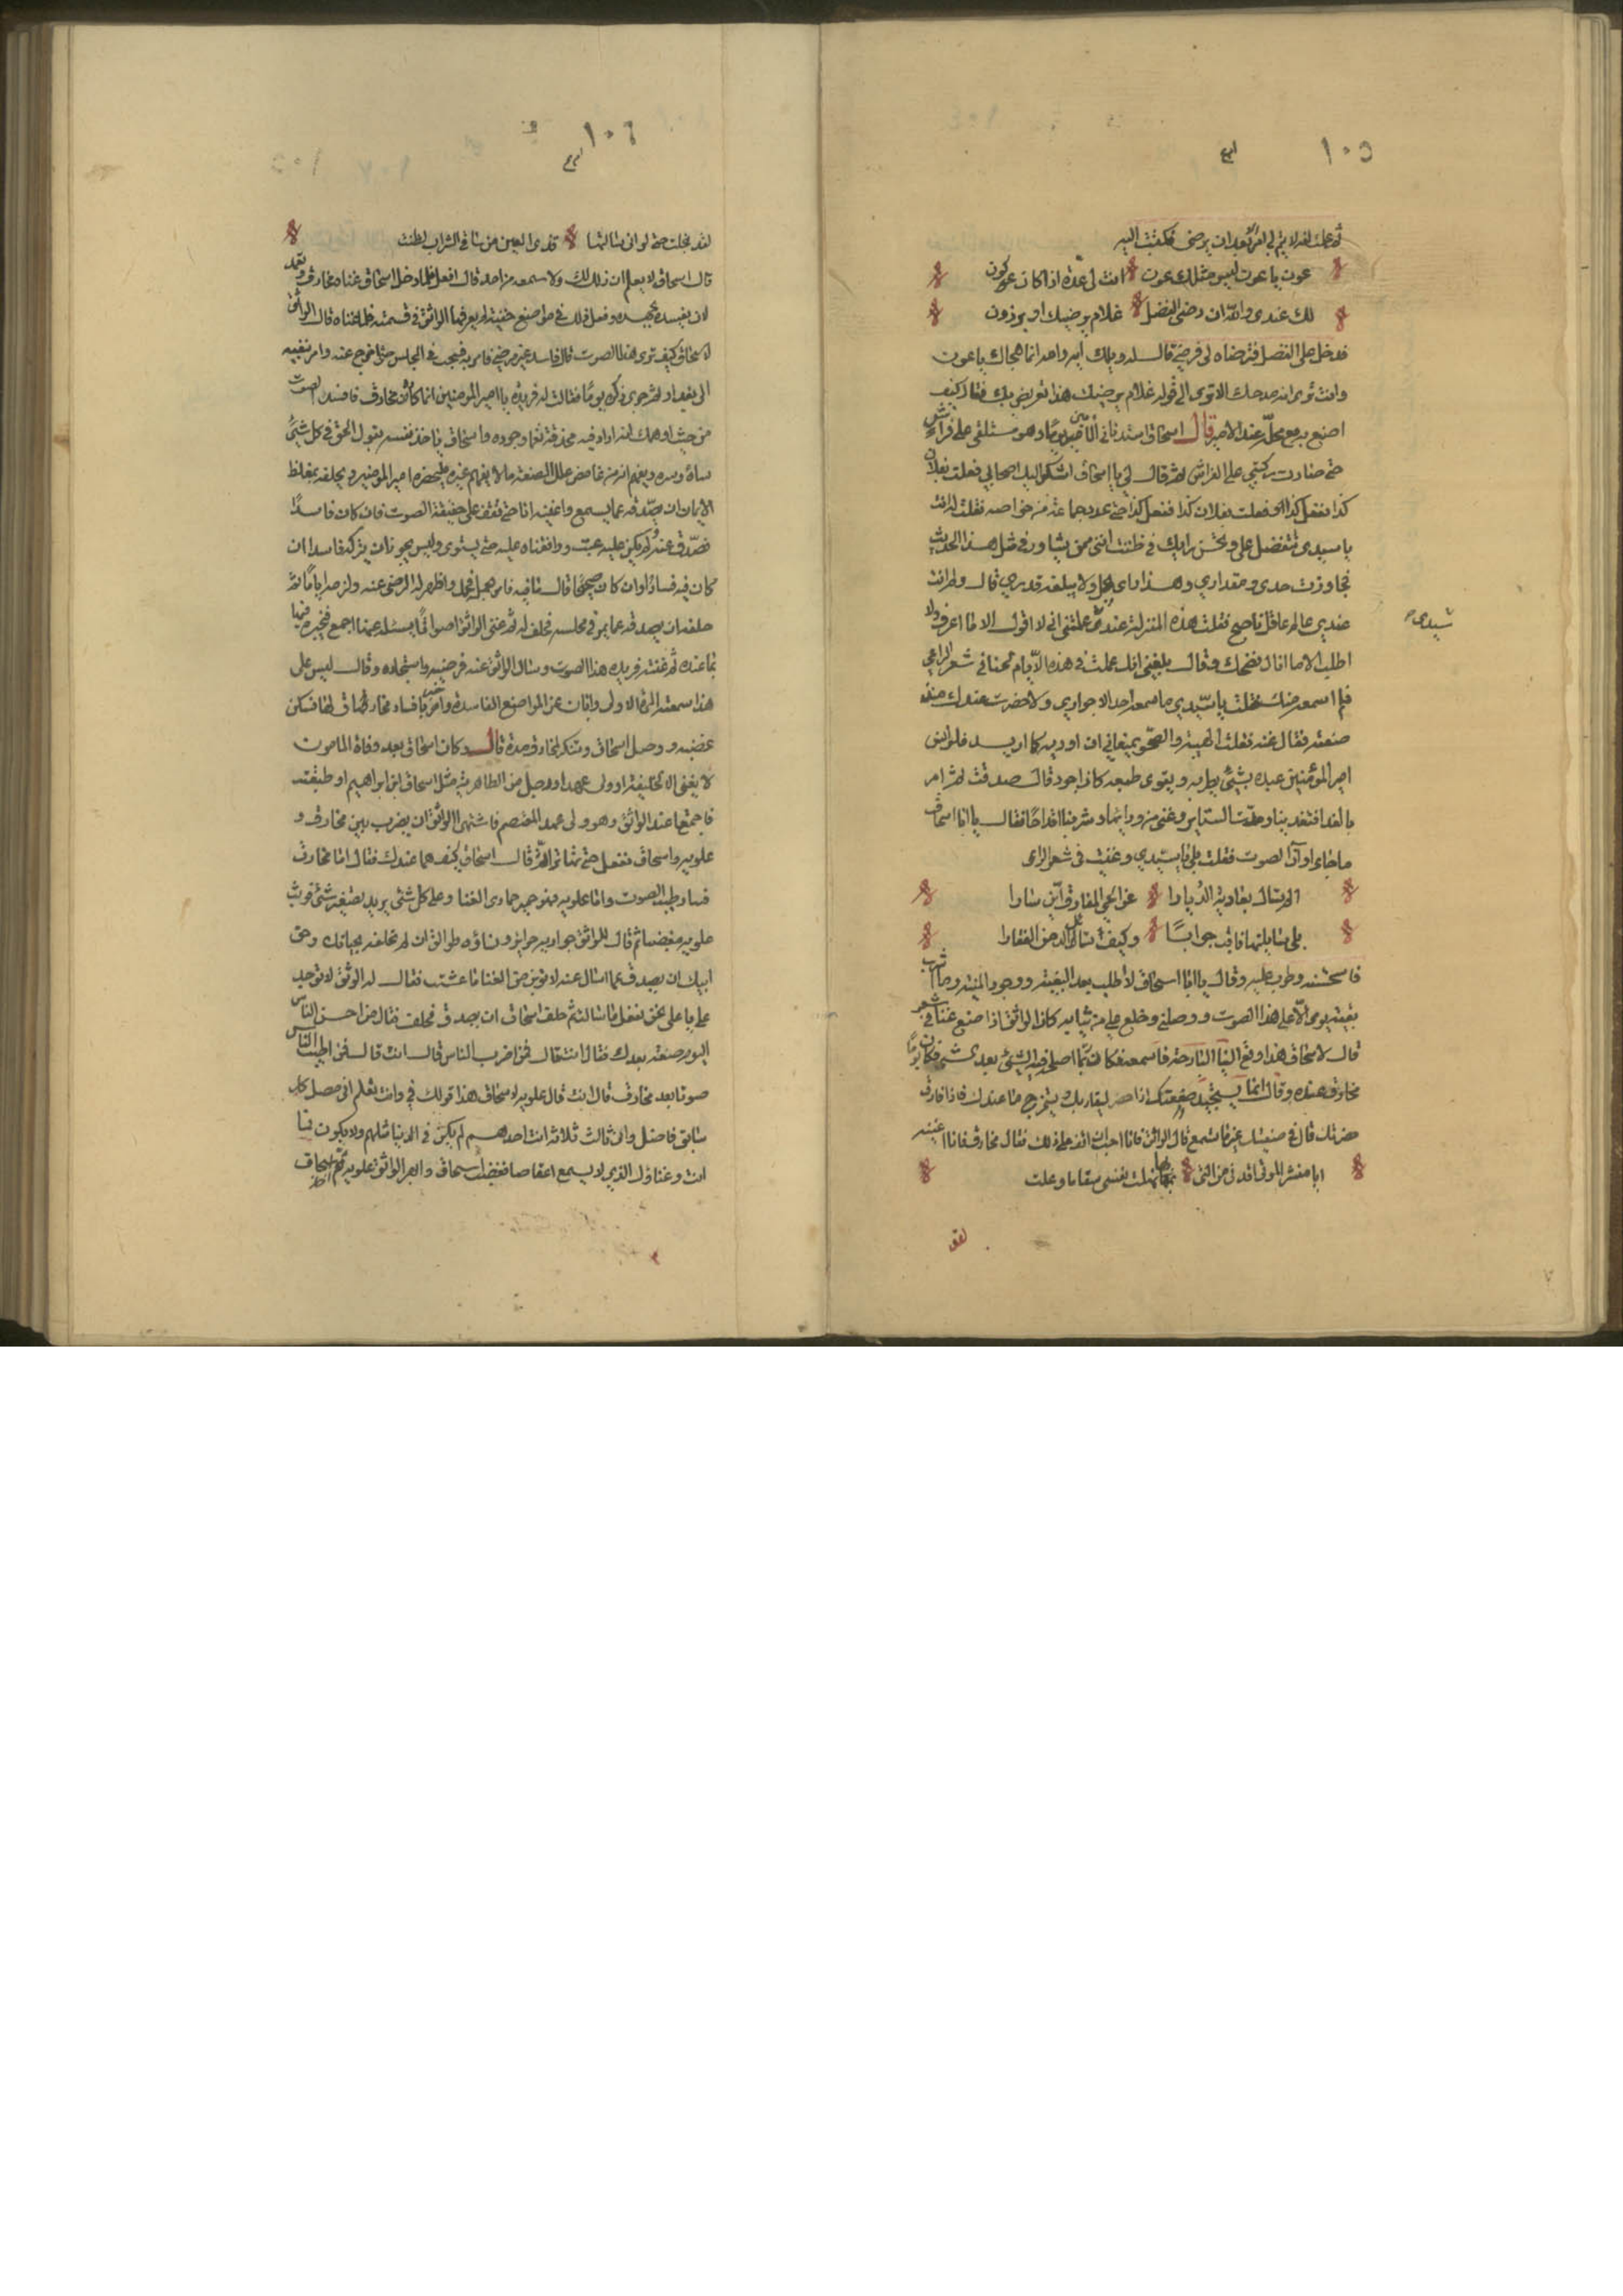 ١٠٥
ثم علمت انه لا يتم لي امر بعد ان يرضى فكتبت اليه
عون يا عون ليس مثلك عون انت لي عدة اذا كان كون
لك عندي والله ان رضي الفضل غلام يرضيك او برذون
فدخل على الفضل فترضاه لي فرضي قال له ويلك ابن واحد انما هجاك يا عون
وانت ترى انه مدحك الا ترى الى قوله غلام يرضيك هذا تعريض بك فقال كيف
اصنع به مع محله عند الامير قال اسحاق استدناني المامون يوما وهو مستلقي على فراش
حتى صارت ركبتي على الفراش ثم قال لي يا اسحاق اشكو اليك اصحابي فعلت بفلان
كذا ففعل كذا وفعلت بفلان كذا ففعل كذا حتى عدد جماعة من خواصه فقلت له انت
يا سيدي بتفضلك علي وبحسن رايك في ظننت انني ممن يشاور في مثل هذا الحديث
تجاوزت حدي ومقداري وهذا راى يجل ولا يبلغه قدري قال ولم انت
عندي عالم عاقل ناصح فقلت هذه المنزلة عند سيدي علمتني اني لا اقول الا ما اعرف ولا
سيدي
اطلب الا ما انال فضحك وقال بلغني انك عملت في هذه الايام لحنا في شعر الراعي
فلم اسمعه منك فقلت يا سيدي ما سمعه احد الا جواري ولا حضرت عندك منذ
صنعته فقال غنه فقلت الهيبة والصحو يمنعاني ان اوديه كما اريد فلو انس
امير المؤمنين عبده بشيء يطربه ويقوى طبعه كان اجود قال صدقت ثم امر
بالغدا فتغدينا ومدت الستاير وغني من وراءها وشربنا اقداحا فقال يا اسحاق
ما جاء اوان الصوت فقلت بلى يا سيدي وغنيت في شعر الراعي
الم تسال بعارمة الديارا عن الحي المفارق اين سارا
بلى سايلتها فابت جوابا وكيف سوالك الدمن القفارا
فاستحسنه وطرب عليه وقال يا ابا اسحاق لا طلب بعد البغية ووجود المنية وما شرب
بقية يومه الا على هذا الصوت ووصلني وخلع علي من ثيابه كان الواثق اذا صنع غناء في شعر
قال لاسحاق هذا وقع الينا البارحة فاسمعه فكان ربما اصلح فيه الشيء بعد الشيء فكان يوما
مخارق عنده وقال انما يستجيد صنعتك اذا حضر ليقاربك ويستخرج ما عندك فاذا فارق
حضرتك قال في صنعتك غير ما تسمع قال الواثق فانا احب ان اقف على ذلك فقال مخارق فانا اغنيه
ايا منشر الموتى اقدني من التي بها نهلت نفسي سقاما وعلت
لقد

١٠٦
لقد بخلت حتى لو اني سالتها قذى العين من سافي التراب لظنت
قال اسحاق لا يعلم ان ذلك لك ولا سمعه من احد قال افعل فلما دخل اسحاق غناه مخارق وتعمد
لان يفسده بجهده وفعل ذلك في مواضع خفية لم يعرفها الواثق في قسمته فلما غناه قال الواثق
لاسحاق كيف ترى هذا الصوت قال فاسد غير مرضي فامر به فسحب في المجلس حتى اخرج عنه وامر بنفيه
الى بغداد ثم جرى ذكره يوما فقالت له فريدة يا امير المؤمنين انما كاده مخارق فافسد الصوت
من حيث اوهمك انه زاد فيه بحذقه نغما وجوده واسحاق ياخذ نفسه بقول الحق في كل شيء
ساءه وسره ويفهم من غامض علل الصنعة ما لا يفهم غيره فليحضره امير المؤمنين ويحلفه بمغلظ
الايمان ان يصدقه عما يسمع واغنيه انا حتى نقف على حقيقة الصوت فان كان فاسدا
فصدق عنه لم يكن عليه عتب ووافقناه عليه حتى يستوى وليس يجوز ان يتركه فاسدا ان
كان فيه فساد او ان كان صحيحا قال ما فيه فامر بحمله فحمل واظهر له الرضى عنه ولزمه اياما ثم
حلفه ان يصدقه عما يمر في مجلسه فحلف له ثم غنى الواثق اصواتا يسئله عنها اجمع فخبره فيها
بما عنده ثم غنته فريده هذا الصوت وسال الواثق عنه فرضيه واستجاده وقال ليس على
هذا سمعته المرة الاولى وابان عن المواضع الفاسدة واخبره بافساد مخارق اياها فسكن
غضبه ووصل اسحاق وتنكر لمخارق مدة قال وكان اسحاق بعد وفاة المامون
لا يغني الا لخليفة او ولي عهد او رجل من الطاهرية مثل اسحاق ابن ابراهيم او طبقته
فاجتمعا عند الواثق وهو ولى عهد المعتصم فاشتهى الواثق ان يضرب بين مخارق و
علويه واسحاق ففعل حتى تماثوا ثم قال اسحاق كيف هما عندك فقال اما مخارق
فناد طيب الصوت واما علويه فهو خير حماري الغنا وعلى كل شيء يريد تصغيره شيء فوثب
علويه مغضبا ثم قال للواثق جواريه حراير ونساؤه طوالق ان لم تحلفه بحياتك وحق
ابيك ان يصدق عما اسال عنه لا تبن من حق الغنا ما عشت فقال له الوثق لا توحد
علي يا علي نحن نفعل ما سالت ثم حلف اسحاق ان يصدق فحلف فقال من احسن الناس
اليوم صنعة بعدك فقال انت قال فمن اضرب الناس قال انت قال فمن اطيب الناس
صوتا بعد مخارق قال انت قال علويه لاسحاق هذا قولك في وانت تعلم اني مصل كل
سابق فاضل واني ثالث ثلاثة انت احدهم لم يكن في الدنيا مثلهم ولا يكون فيا
انت وغناؤك الذي لا يسمع فغضب اسحاق وانتهر الواثق علويه ثم اسحاق